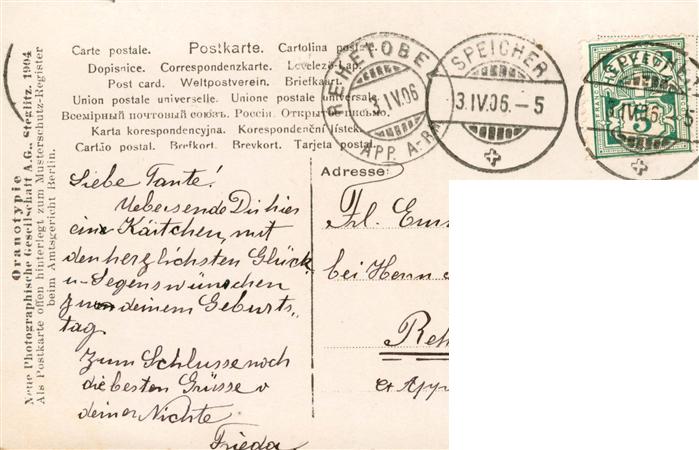 Carte postale. Postkarte. Cartolina postale.
Dopisnice. Correspondenzkarte. Levelező-Lap.
Post card. Weltpostverein. Briefkaart.
Union postale universelle. Unione postale universale
Всемірный почтовый союзъ. Россия. Открытое письмо.
Karta korespondencyjna. Korespondenční lístek.
Cartão postal. Brefkort. Brevkort. Tarjeta postal.
REHETOBEL
3.IV.06
APP. A-RH
SPEICHER
3.IV.06.-5
SPEICHER
3.IV.06.-5
5
Oranotypie
Neue Photographische Gesellschaft A.G., Steglitz. 1904
Als Postkarte offen hinterlegt zum Musterschutz-Register
beim Amtsgericht Berlin.
Liebe Tante!
Uebersende Dir hier
ein Kärtchen, mit
den herzlichsten Glück-
u- Segenswünschen
zu deinem Geburts-
tag.
Zum Schlusse noch
die besten Grüsse v
deiner Nichte
Frieda
Adresse:
Frl. Em
bei Herrn
Reh
App